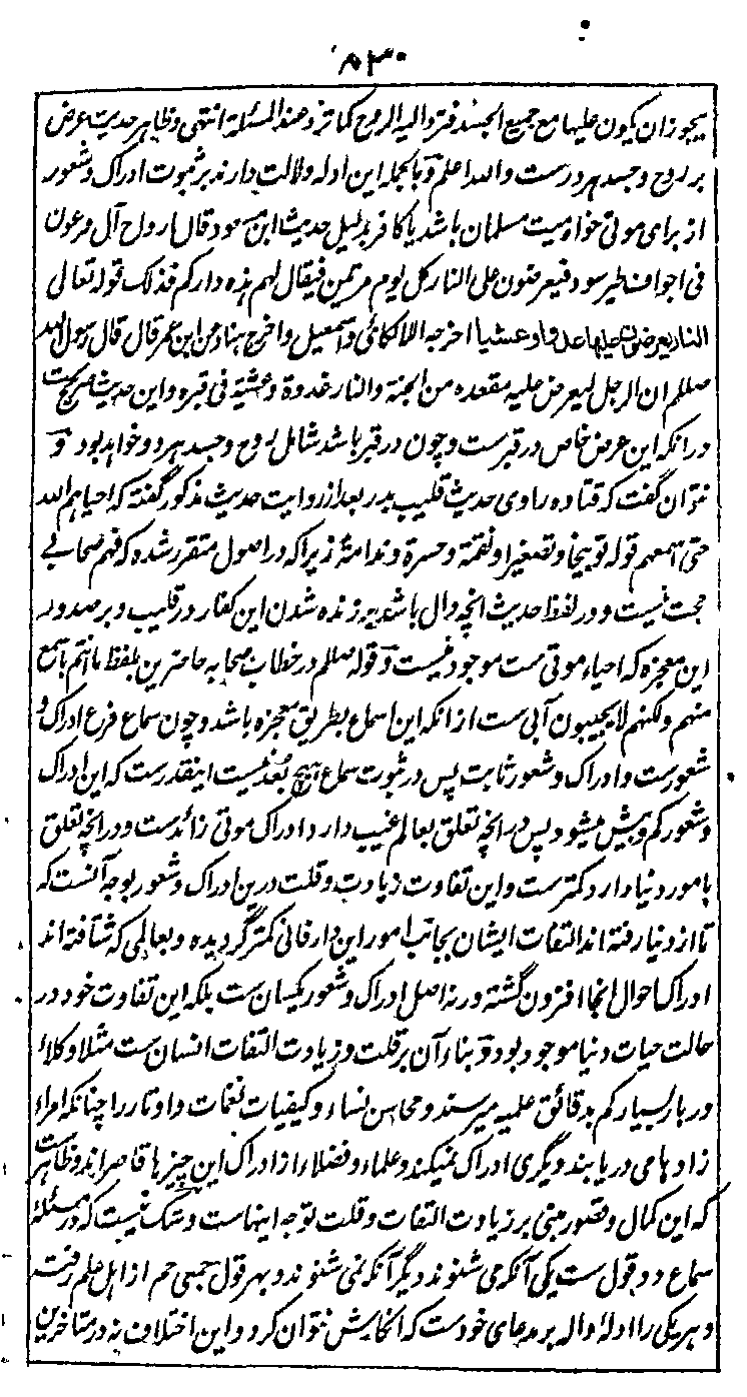 ۸۳۰
یجوز ان یکون علیها مع جمیع الجسد فترد الیه الروح کما ترد عند المسئلة انتهی وظاهر حدیث عرض
بر روح وجسد هر دوست والله اعلم وبالجمله این ادله دلالت دارند بر ثبوت ادراک وشعور
از برای موتی خواه میت مسلمان باشد یا کافر بدلیل حدیث ابن مسعود قال ارواح آل فرعون
فی اجواف طیر سود فیعرضون علی النار کل یوم مرتین فیقال لهم هذه دارکم فذلک قوله تعالی
النار یعرضون علیها غدوا وعشیا اخرجه اللالکائی واسمعیل واخرج هناد عن ابن عمر قال قال رسول الله
صللم ان الرجل لیعرض علیه مقعده من الجنة والنار غدوة وعشیة فی قبره واین حدیث صریحست
در آنکه این عرض خاص در قبرست وچون در قبر باشد شامل روح وجسد هر دو خواهد بود و
نتوان گفت که قتاده راوی حدیث قلیب بدر بعد از روایت حدیث مذکور گفته که احیاهم الله
حتی اسمعهم قوله توبیخا وتصغیرا ونقمة وحسرة وندامة زیراکه در اصول متقرر شده که فهم صحابی
حجت نیست ودر لفظ حدیث انچه دال باشد بر زنده شدن این کفار در قلیب وبر صدور
این معجزه که احیاء موتی ست موجود نیست وقوله صللم در خطاب صحابه حاضرین بلفظ ما انتم باسمع
منهم ولکنهم لا یجیبون آبی ست از انکه این اسماع بطریق معجزه باشد وچون سماع فرع ادراک و
شعورست وادراک وشعور ثابت پس در ثبوت سماع هیچ بعد نیست اینقدرست که این ادراک
وشعور کم وبیش میشود پس در انچه تعلق بعالم غیب دارد ادراک موتی زائدست ودر انچه تعلق
بامور دنیا دارد کمترست واین تفاوت زیادت وقلت درین ادراک وشعور بوجه آنست که
تا از دنیا رفته اند التفات ایشان بجانب امور این دار فانی کمتر گردیده وبعالمی که شتافته اند
ادراک احوال آنجا افزون گشته ورنه اصل ادراک وشعور یکسان ست بلکه این تفاوت خود در
حالت حیات دنیا موجود بود وبناء آن بر قلت وزیادت التفات انسان ست مثلا وکلاء
دربار بسیار کم بدقائق علمیه میرسند ومحاسن نساء وکیفیات نغمات واوتار را چنانکه امراء
زادها می دریابند دیگری ادراک نمیکند وعلماء وفضلاء از ادراک این چیزها قاصر اند وظاهرست
که این کمال وقصور مبنی بر زیادت التفات وقلت توجه اینهاست وشک نیست که در مسئلهٔ
سماع دو قول ست یکی آنکه می شنوند دیگر آنکه نمی شنوند وبهر قول جمعی جم از اهل علم رفته
وهر یکی را ادلهٔ داله بر مدعای خودست که انکارش نتوان کرد واین اختلاف نه در متاخرین